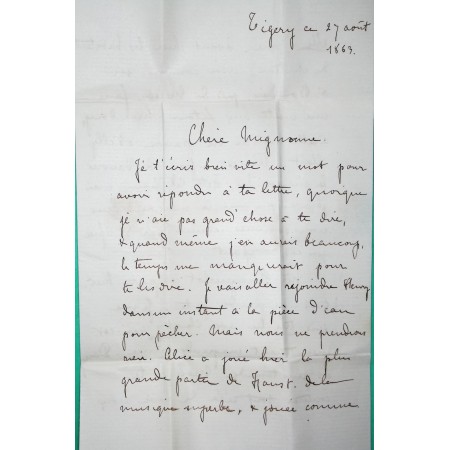 Tigery ce 27 août
1863.
Chère Mignonne.
Je t'écris bien vite un mot pour
avoir répondu à ta lettre, quoique
je n'aie pas grand'chose à te dire,
& quand même j'en aurais beaucoup,
le temps me manquerait pour
te les dire. Je vais aller rejoindre Henry
dans un instant à la pièce d'eau
pour pêcher. Mais nous ne prendrons
rien. Alice a joué hier la plus
grande partie de Faust. de la
musique superbe, & jouée comme